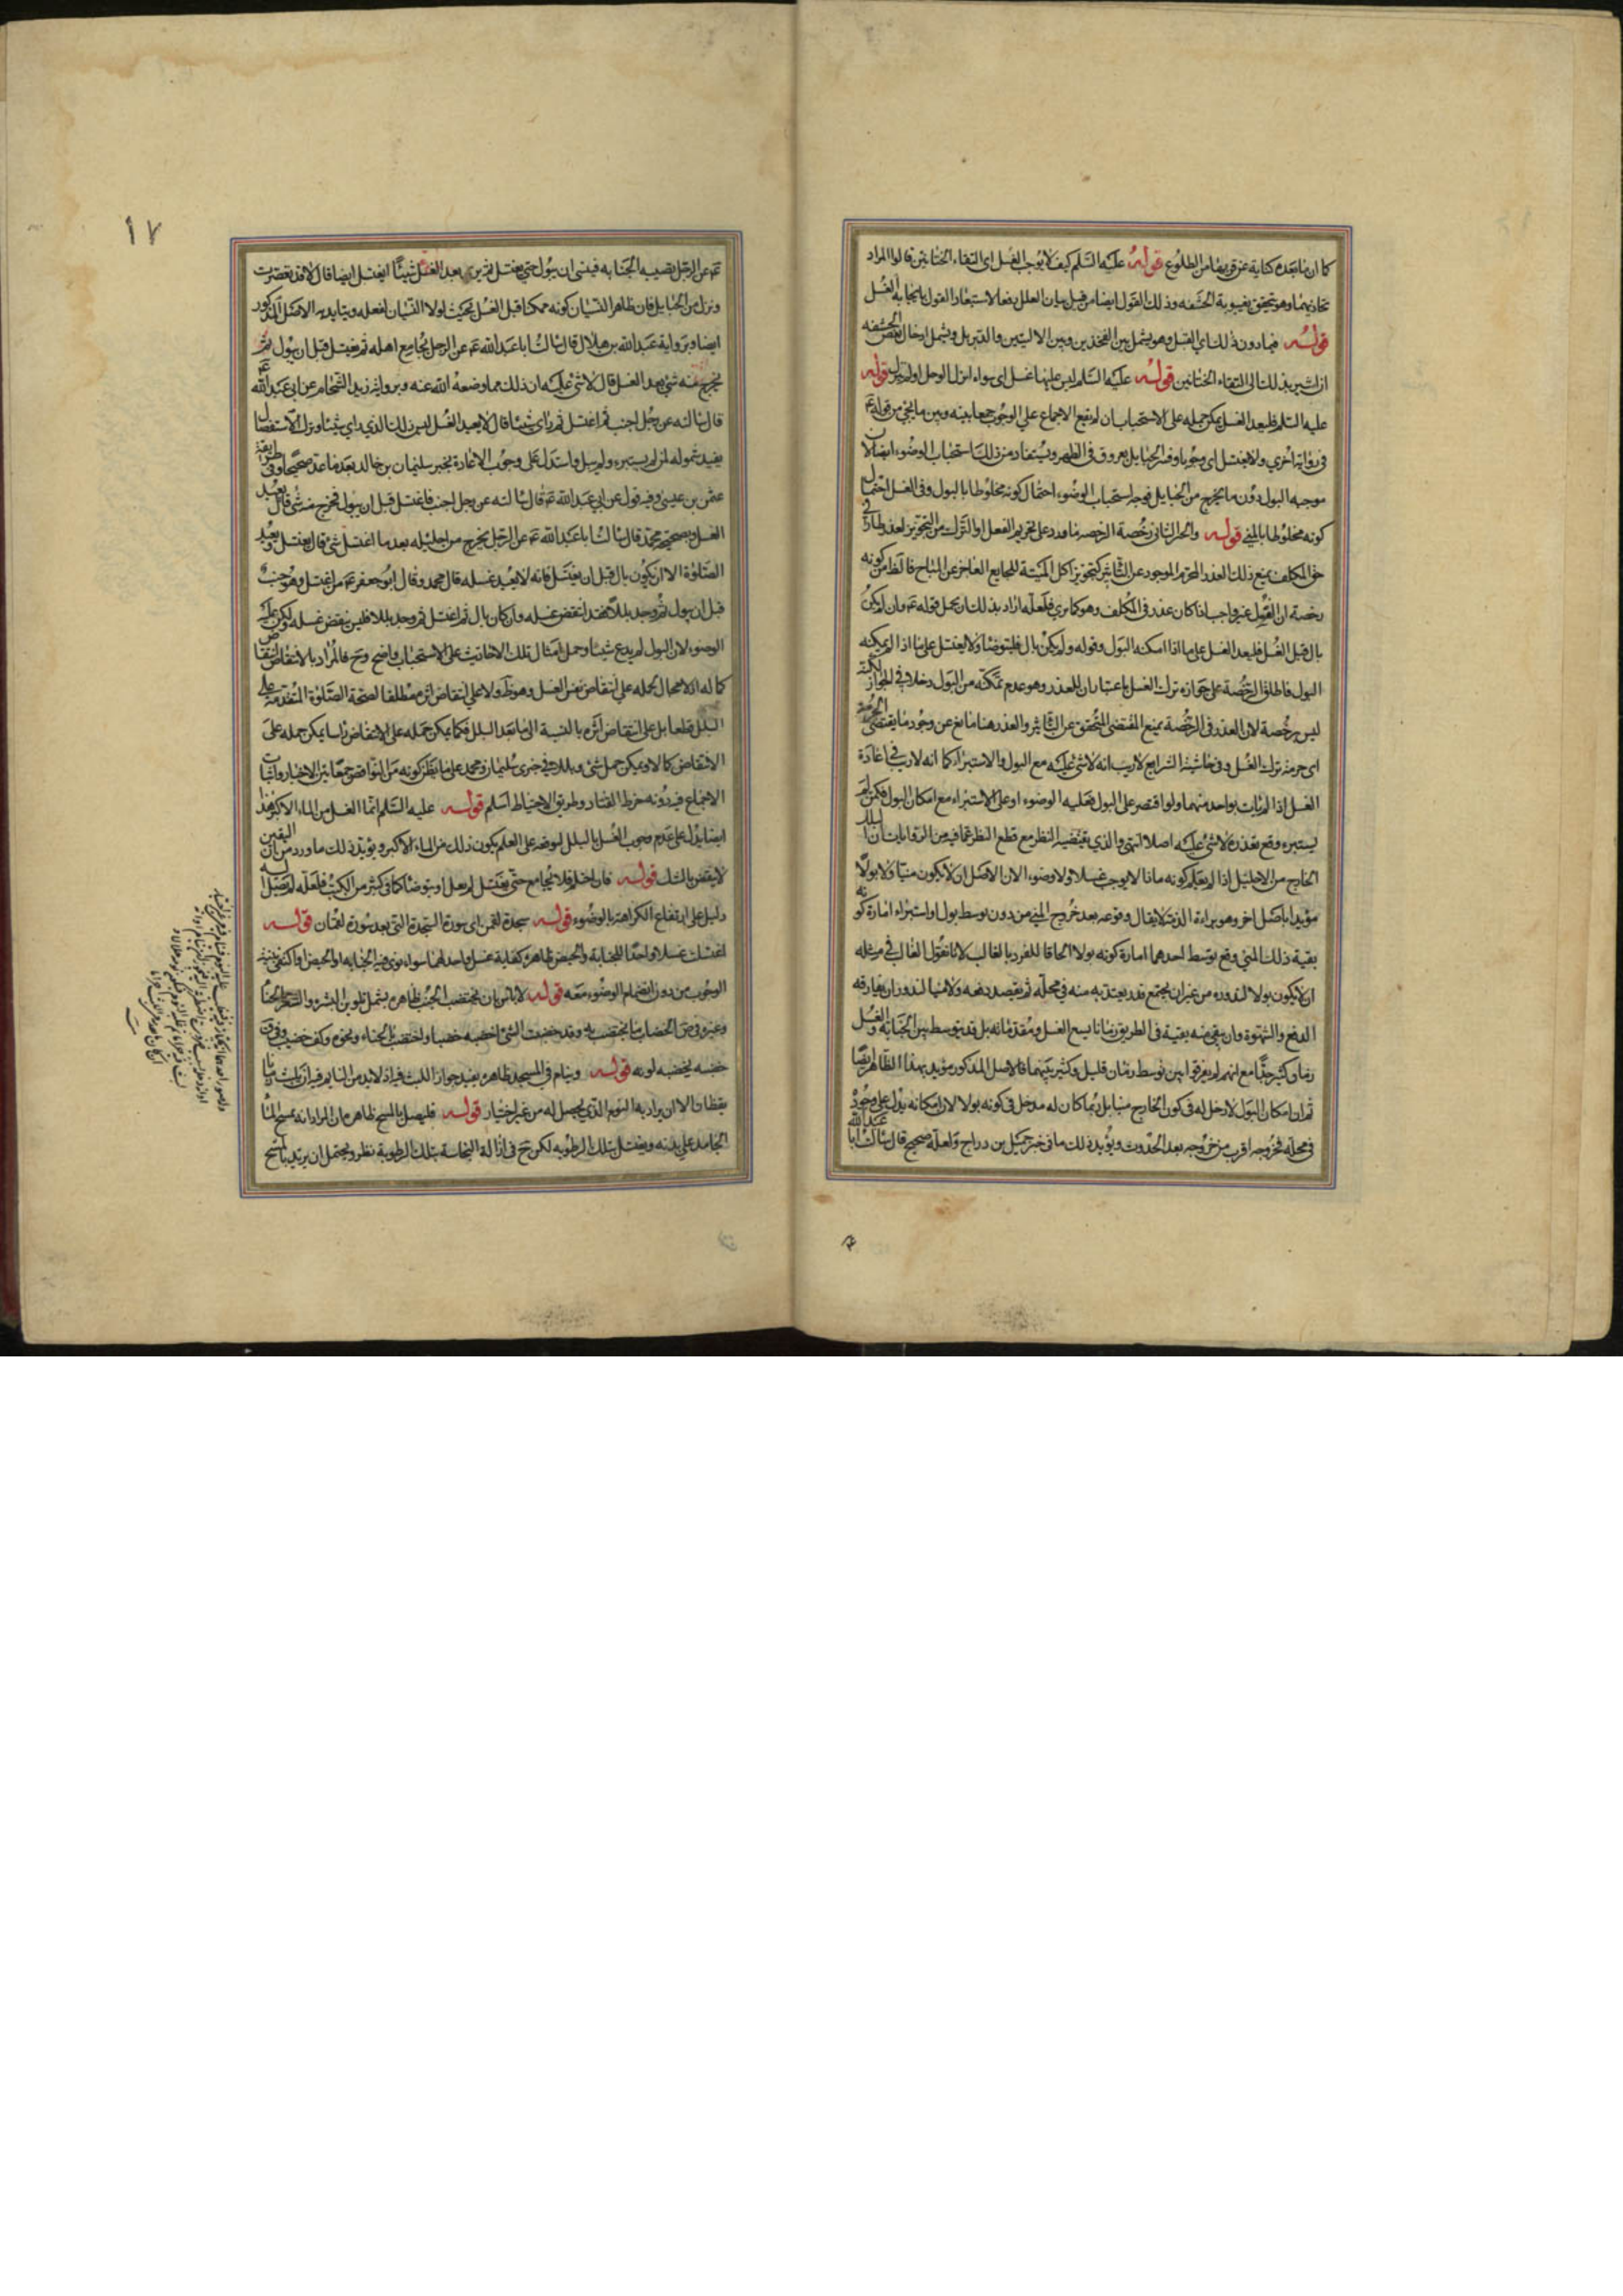 كما ان ما بعده كناية عن قربها من الطلوع قوله عليه السلم كيف لا يوجب الغسل اى التقاء الختانين قالوا المراد
تحاذيهما وهو يتحقق بغيبوبة الحشفه وذلك القول ايضا من قبل بيان العلل دفعا لاستبعاد القول بايجابه الغسل
قوله فيما دون ذلك اي القبل وهو يشمل بين الفخذين وبين الاليتين والدبر بل ويشمل ادخال بعض الحشفه
ان اشير بذلك الى التقاء الختانين قوله عليه السلم ليس عليهما غسل اى سواء انزلا لوحل او لم ينزل قوله
عليه السلم فليعد الغسل يمكن حمله على الاستحباب ان لم يقع الاجماع علي الوجوب جمعا بينه وبين ما يجئ من قوله ع
فى رواية اخري ولا يغتسل اى وجوبا وفسر الحبايل بعروق فى الظهر ويستفاد من ذلك استحباب الوضوء ايضا لان
موجبه البول دون ما يخرج من الحبايل فوجه استحباب الوضوء احتمال كونه مخلوطا بالبول وفى الغسل احتمال
كونه مخلوطا بالمني قوله والخبر الثانى رخصة الرخصه ما ورد على تحريم الفعل او الترك من التجويز لعذر طار فى
حق المكلف يمنع ذلك العذر المحرم الموجود عن التاثير كتجويز اكل الميتة للجايع العاجز عن المباح فالظ من كونه
رخصة ان الغسل غير واجب اذا كان عذر فى المكلف وهو كما يري فلعله اراد بذلك ان يحمل قوله ع وان لم يكن
بال قبل الغسل فليعد الغسل على ما اذا امكنه البول وقوله ولم يكن بال فليتوضا ولا يغتسل على ما اذا لم يمكنه
البول فاطلاق الرخصة على جوازه ترك الغسل باعتبار ان للعذر وهو عدم تمكنه من البول دخلا فى الجواز لكنه
ليس برخصة لان العذر فى الرخصة يمنع المقتضى المتحقق عن التاثير والعذر هنا مانع عن وجود ما يقتضى الحرمة
اى حرمة ترك الغسل وفى حاشية الشرايع لا ريب انه لا شئ عليه مع البول والاستبراء كما انه لا ريب في اعادة
الغسل اذا لم يات بواحد منهما ولو اقتصر على البول فعليه الوضوء او على الاستبراء مع امكان البول فكمن لم
يستبره ومع تعذره لا شئ عليه اصلا انتهى والذي يقتضيه النظر مع قطع النظر عما فيه من الروايات ان البلل
الخارج من الاحليل اذا لم يعلم كونه ماذا لا يوجب غسلا ولا وضوء الان الاصل ان لا يكون منيا ولا بولا
مؤيدا باصل اخر وهو براءة الذمة لا يقال وقوعه بعد خروج المني من دون توسط بول او استبراء امارة كونه
بقية ذلك المني ومع توسط احدهما امارة كونه بولا الحاقا للفرد بالغالب لانا نقول الغالب في مثله
ان لا يكون بولا لندوره من غير ان يجتمع قدر يعتد به منه في محله ثم يقصد دفعه ولا منيا لندور ان يفارقه
الدفع والشهوة وان يبقى منه بقية فى الطريق زمانا يسع الغسل ومقدماته بل قد يتوسط بين الجنابة والغسل
زمان كثير جدا مع انهم لم يفرقوا بين توسط زمان قليل وكثير بينهما فالاصل المذكور مؤيد بهذا الظاهر ايضا
ثم ان امكان البول لا دخل له فى كون الخارج منيا بل ربما كان له مدخل فى كونه بولا لان امكانه يدل على وجوده
فى محله فخروجه اقرب من خروجه بعد الحدوث ويؤيد ذلك ما فى خبر جميل بن دراج ولعله صحيح قال سالت ابا عبد الله
١٧
ع عن الرجل تصيبه الجنابه فينسى ان يبول حتي يغتسل ثم يرى بعد الغسل شيئا ايغتسل ايضا قال لا قد تعصرت
ونزل من الحبايل فان ظاهر النسيان كونه ممكنا قبل الغسل بحيث لولا النسيان لفعله ويتايد الاصل المذكور
ايضا وبرواية عبد الله بن هلال قال سالت ابا عبد الله ع عن الرجل يجامع اهله ثم يغتسل قبل ان يبول ثم
يخرج منه شئ بعد الغسل قال لا شئ عليه ان ذلك مما وضعه الله عنه وبرواية زيد الشحام عن ابى عبد الله ع
قال سالته عن رجل اجنب ثم اغتسل ثم راى شيئا قال لا يعيد الغسل ليس ذلك الذي راي شيئا وترك الاستفصال
يفيد شموله لمن لم يستبره ولم يبل واستدل على وجوب الاعادة بخبر سليمان بن خالد بعد ما عد صحيحا وفى طريقة
عثمن بن عيسى وفيه قول عن ابي عبد الله ع قال سالته عن رجل اجنب فاغتسل قبل ان يبول فخرج منه شئ قال يعيد
الغسل وبصحيحة محمد قال سالت ابا عبد الله ع عن الرجل يخرج من احليله بعد ما اغتسل شئ قال يغتسل ويعيد
الصلوة الا ان يكون بال قبل ان يغتسل فانه لا يعيد غسله قال محمد وقال ابو جعفر ع من اغتسل وهو جنب
قبل ان يبول ثم وجد بللا فقد انتقض غسله وان كان بال ثم اغتسل ثم وجد بللا فليس ينقض غسله ولكن عليه
الوضوء لان البول لم يدع شيئا وحمل امثال تلك الاحاديث على الاستحباب واضح وح فالمراد بالانتقاض انتقاض
كماله اذ لا مجال لحمله علي انتقاض نفس الغسل وهو ظ ولا علي انتقاض اثره مطلقا لصحة الصلوة المتقدمة على
البلل قطعا بل على انتقاض اثره بالنسبة الى ما بعد البلل فكما يمكن حمله على الانتقاض راسا يمكن حمله على
الانتقاض كمالا ويمكن حمل شئ وبللا في خبرى سليمان ومحمد على ما يظن كونه من النواقض جمعا بين الاخبار واثبات
الاجماع فيه دونه خرط القتاد وطريق الاحتياط اسلم قوله عليه السلم انما الغسل من الماء الاكبر هذا
ايضا يدل على عدم وجوب الغسل بالبلل لتوقفه على العلم بكون ذلك من الماء الاكبر ويؤيد ذلك ما ورد من ان اليقين
لا ينقض بالشك قوله فان احتلم فلا يجامع حتى يغتسل لم يقل او يتوضا كما فى كثير من الكتب فلعله لم يصل اليه
دليل على ارتفاع الكراهة بالوضوء قوله سجدة لقمن اى سورة السجدة التى بعد سورة لقمان قوله
اغتسلت غسلا واحدا للجنابة والحيض ظاهره كفاية غسل واحد لهما سواء نوى فيه الجنابه او الحيض او اكتفى بنية
الوجوب من دون انضمام الوضوء معه قوله لا باس بان يختضب الجنب ظاهره يشمل تلوين البشره والشعر بالحنا
وغيره فى ص الخضاب ما يختضب به وقد خضبت الشئ اخضبه خضبا واختضب بالحناء ونحوه وكف خضيب وفى ق
خضبه يخضبه لونه قوله وينام في المسجد ظاهره يفيد جواز اللبث فيه اذ لا بد من النايم فيه ان يلبث زمانا
يقظان الا ان يراد به النوم الذي يحصل له من غير اختيار قوله فليصل بالمسح ظاهره ان المراد انه يمسح الماء
الجامد علي بدنه ويغتسل بتلك الرطوبه لكن ح فى ازالة النجاسة بتلك الرطوبة نظر ويحتمل ان يريد بالمسح